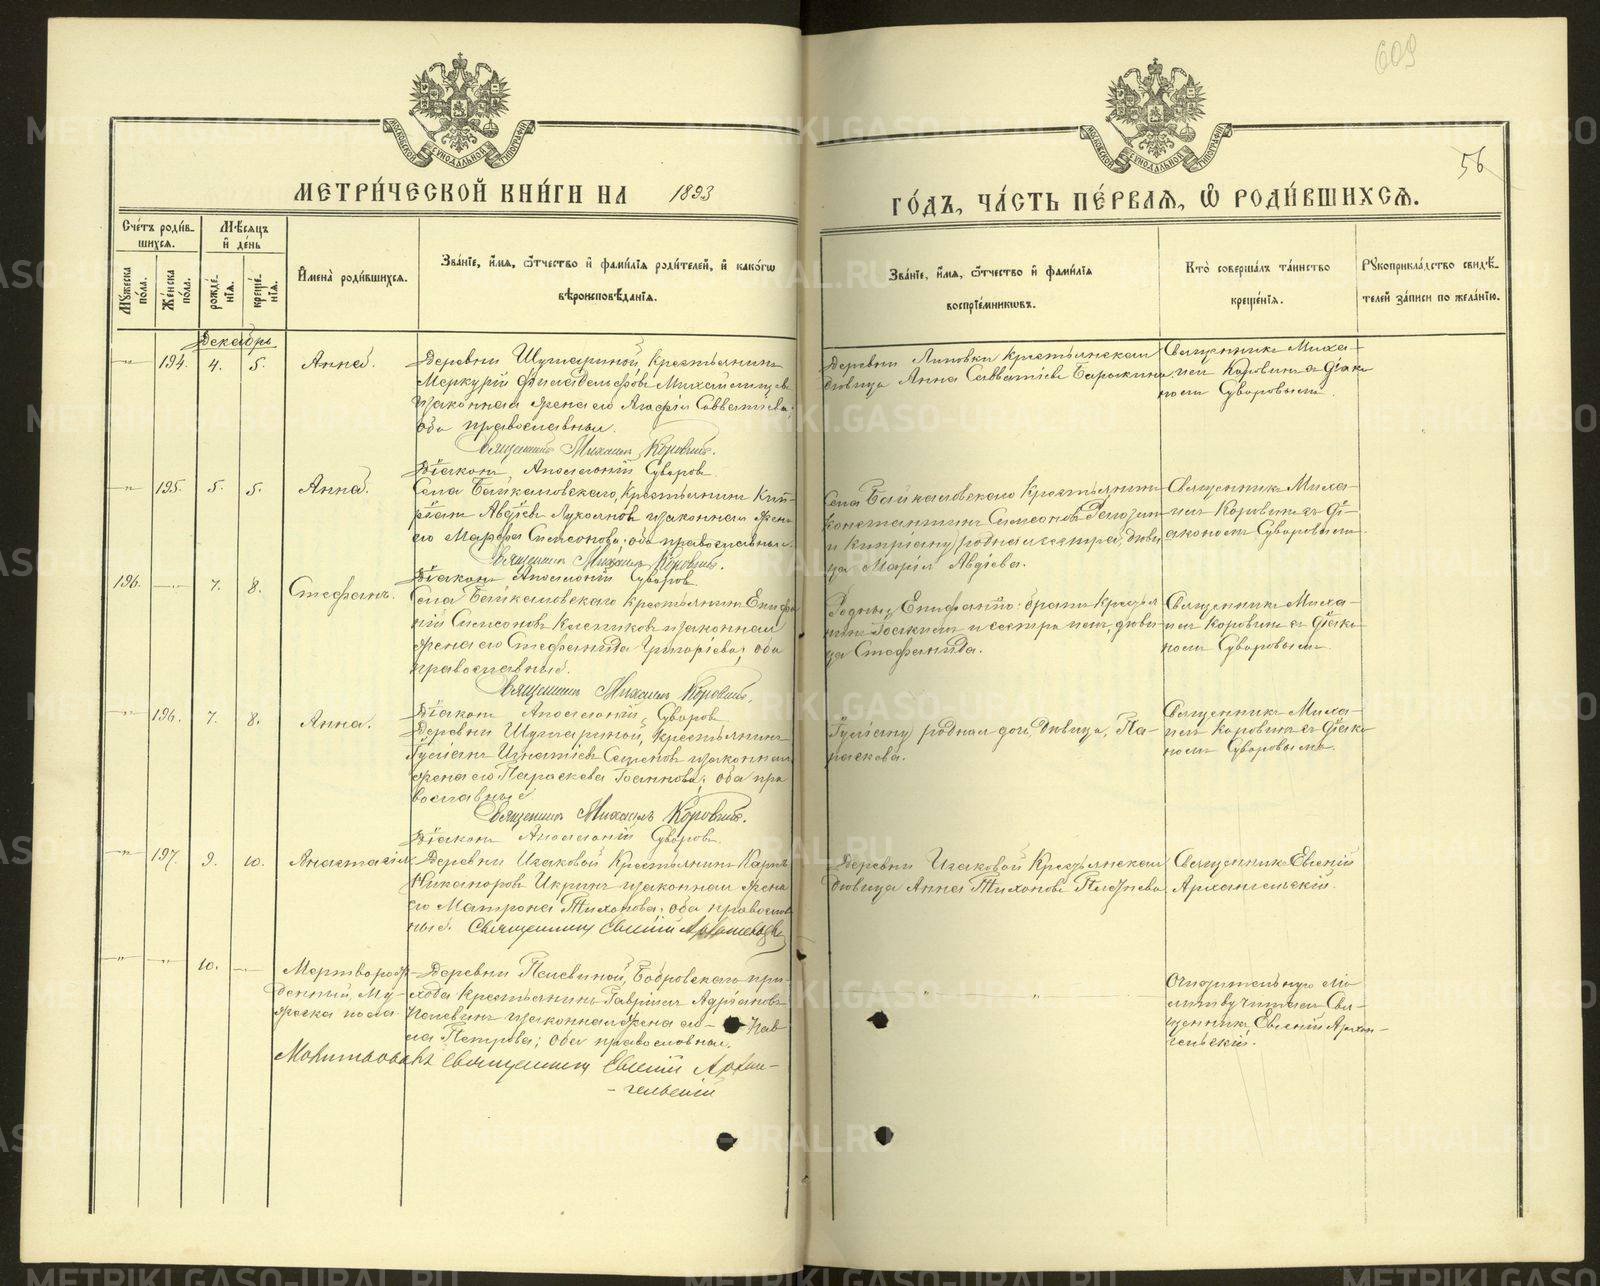 609
56
МОСКОВСКОЙ СѴНОДАЛЬНОЙ ТИПОГРАФІИ
МОСКОВСКОЙ СѴНОДАЛЬНОЙ ТИПОГРАФІИ
МЕТРИ́ЧЕСКОЙ КНИ́ГИ НА 1893
ГО́ДЪ, ЧА́СТЬ ПЕ́РВАЯ, Ѽ РОДИ́ВШИХСЯ.
Сче́тъ роди́в-
шихся.
Мꙋжеска по́ла.
Же́нска пола.
Мѣ́сяцъ
и҆ де́нь
рожде́-
нія.
креще́-
нія.
И҆мена̀ роди́вшихся.
Зва́ніе, и҆́мя, ѻ҆́тчество и҆ фами́лія роди́телей, и҆ како́гѡ
вѣроисповѣ́данія.
Зва́ніе, и҆́мя, ѻ҆́тчество и҆ фами́лія
воспріе́мниковъ.
Кто̀ соверша́лъ та́инство
креще́нія.
Рꙋкоприкла́дство свидѣ́-
телей за́писи по жела́нію.
Декабрь
—"— 194. 4. 5. Анна.
Деревни Шушариной, крестьянинъ
Меркурій Филадельфовъ
законная жена его Агафія Савватіева;
оба православные.
Священникъ Михаилъ Коровинъ.
Діаконъ Аполлоній Суворов
Деревни Липовки крестьянская
дѣвица Анна Савватіева
Священникъ Миха-
илъ Коровинъ съ діако-
номъ Суворовымъ.
—"— 195. 5. 5. Анна.
Села Байкаловскаго, крестьянинъ Кип-
ріанъ Авдіевъ Лукояновъ и законная жена
его Марѳа Симеонова; оба православные.
Священникъ Михаилъ Коровинъ.
Діаконъ Аполлоній Суворов
Села Байкаловскаго крестьянинъ
Константинъ Симеоновъ
и Кипріану родная сестра, дѣви-
ца Марія Авдіева.
Священникъ Миха-
илъ Коровинъ съ ді-
акономъ Суворовымъ
196. —"— 7. 8. Стефанъ.
Села Байкаловскаго крестьянинъ Епифа-
ній Симеоновъ и законная
жена его Стефанида Григоріева; оба
православные.
Священникъ Михаилъ Коровинъ.
Діаконъ Аполлоній Суворов
Родные Епифанію: братъ крестья-
нинъ Іоакимъ и сестра ихъ, дѣви-
ца Стефанида.
Священникъ Миха-
илъ Коровинъ съ діако-
номъ Суворовымъ
—"— 196. 7. 8. Анна.
Деревни Шушариной, крестьянинъ
Іуліанъ Игнатіевъ и законная
жена его Параскева Іоаннова; оба пра-
вославные
Священникъ Михаилъ Коровинъ.
Діаконъ Аполлоній Суворов
Іуліану родная дочь, дѣвица, Па-
раскева.
Священникъ Миха-
илъ Коровинъ съ діако-
номъ Суворовымъ.
—"— 197. 9. 10. Анастасія
Деревни Исаковой Крестьянинъ Карпъ
Никаноровъ Икринъ и законная жена
его Матрона Тихонова; оба православ-
ные. Священникъ Евгеній Архангельскій
Деревни Исаковой Крестьянская
дѣвица Анна Тихонова
Священникъ Евгеній
Архангельскій.
—"— —"— 10. —
Мертворож-
денный, му-
жеска пола
Деревни Пелевиной, Бобровскаго при-
хода Крестьянинъ Гавріилъ Адріановъ
Пелевинъ и законная жена его Пав-
ла Петрова; оба православные.
Священникъ Евгеній Архан-
гельскій
Очистительную мо-
литву читалъ Свя-
щенникъ Евгеній Архан-
гельскій.
METRIKI.GASO-URAL.RU